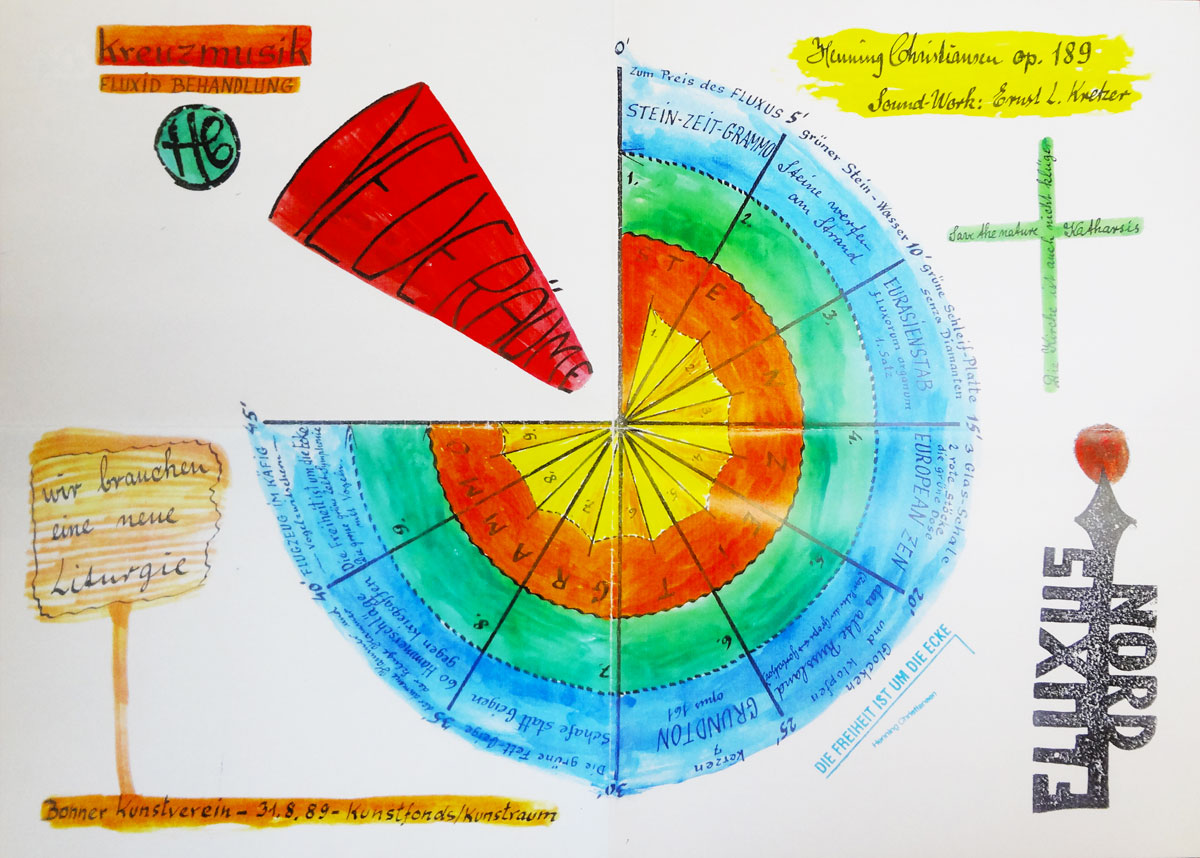 Kreuzmusik
FLUXID BEHANDLUNG
HC
VIELDERÄUME
Henning Christiansen op. 189
Sound-Work: Ernst L. Kretzer
Save the nature Katharsis
Die Kirche ist auch nicht klüger
0'
Zum Preis des FLUXUS 5' grüner Stein-Wasser 10' grüne Schleif-Platte 15' 3 Glas-Schale
senza Diamanten
STEIN-ZEIT-GRAMMO
Steine werden
am Strand
EURASIENSTAB
fluxorum organum
1. Satz
2 rote Stöcke
die grüne Dose
EUROPEAN ZEN
20'
das alte Russland
und
Glocken klopfen
25'
GRUNDTON
opus 161
Kerzen
30'
Die grüne Fell-Geige
Schafe statt Geigen
35'
160 Hammerschläge
gegen Kriegaffen
40'
FLUGZEUG IM KÄFIG
Die Freiheit ist um die Ecke
45'
1.
2.
3.
4.
5.
6.
7.
8.
9.
wir brauchen
eine neue
Liturgie
Bonner Kunstverein – 31.8.89 – Kunstfonds/Kunstraum
DIE FREIHEIT IST UM DIE ECKE
Henning Christiansen
NORD
FLUXUS